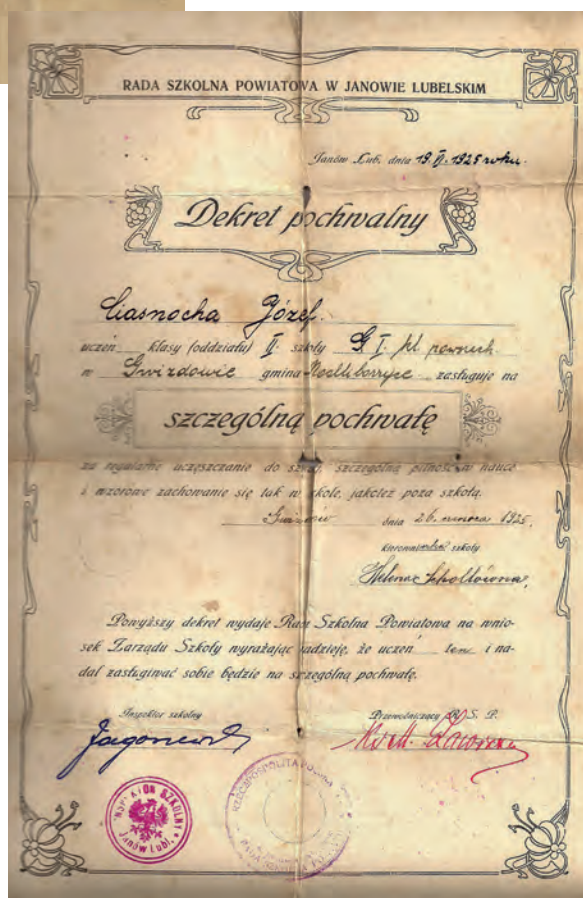 RADA SZKOLNA POWIATOWA W JANOWIE LUBELSKIM
Janów Lub. dnia 19. VI. 1925 roku.
Dekret pochwalny
Ciasnocha Józef.
uczeń klasy (oddziału) II. szkoły I. kl. powsz.
w Gwizdowie gmina zasługuje na
szczególną pochwałę
za regularne uczęszczanie do szkoły, szczególną pilność w nauce
i wzorowe zachowanie się tak w szkole, jakoteż poza szkołą.
Gwizdów dnia 26. czerwca 1925.
szkoły
Helena
Powyższy dekret wydaje Rada Szkolna Powiatowa na wnio-
sek Zarządu Szkoły wyrażając nadzieję, że uczeń ten i na-
dal zasługiwać sobie będzie na szczególną pochwałę.
Inspektor szkolny Przewodniczący R. S. P.
INSPEKTOR SZKOLNY
Janów Lubl.
RZECZPOSPOLITA POLSKA
RADA SZKOLNA